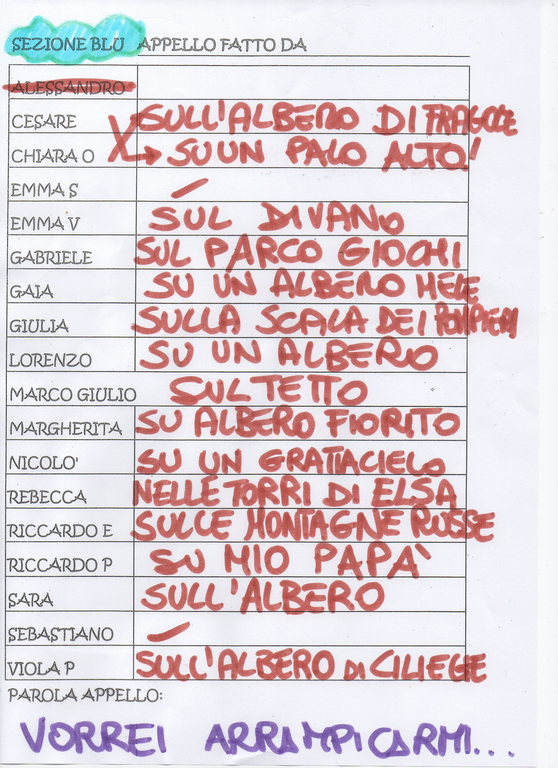 SEZIONE BLU APPELLO FATTO DA
ALESSANDRO
CESARE SULL'ALBERO DI FRAGOLE
CHIARA O SU UN PALO ALTO!
EMMA S –
EMMA V SUL DIVANO
GABRIELE SUL PARCO GIOCHI
GAIA SU UN ALBERO MELE
GIULIA SULLA SCALA DEI POMPIERI
LORENZO SU UN ALBERO
MARCO GIULIO SUL TETTO
MARGHERITA SU ALBERO FIORITO
NICOLO' SU UN GRATTACIELO
REBECCA NELLE TORRI DI ELSA
RICCARDO E SULLE MONTAGNE RUSSE
RICCARDO P SU MIO PAPA'
SARA SULL'ALBERO
SEBASTIANO –
VIOLA P SULL'ALBERO DI CILIEGE
PAROLA APPELLO:
VORREI ARRAMPICARMI...